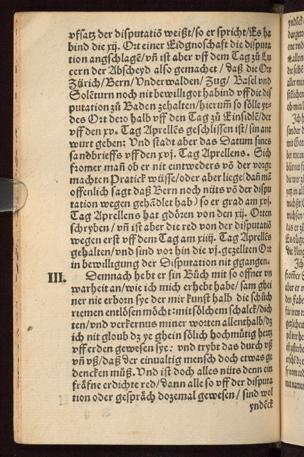 vfsatz der disputatiō weißt/ so er spricht/ Es ha
bind die xij. Ort einer Eidgnoschaft die disputa
tion angschlagē/ vñ ist aber vff dem Tag zů Lu
cern der Abscheyd also gemachet / daß die Ort
Zürich/ Bern/ Vnderwalden/ Zug/ Basel vnd
Soleturn noch nit bewilligot habind vff die dis
putation zů Baden zehalten/ hierum̃ so sölle ye-
des Ort dero halb vff den Tag zů Einsidlē/ der
vff den xv. Tag Aprellēs geschlissen ist/ sin ant
wurt geben: Vnd stadt aber das Datum sines
sandbrieffs vff den xvj. Tag Aprellens. Sich
fromer man ob er nit entweders vō der vorge
machten Pratick wüsse/ oder aber liege/ dañ mā
offenlich sagt daß Bern noch nüts vō der dispu
tation wegen gehādlet hab / so er grad am xvj.
Tag Aprellens hat gdören von den xij. Orten
schryben / vñ ist aber die red von der disputatiō
wegen erst vff dem Tag am xiiij. Tag Aprellēs
gehalten/ vnd sind vor hin die vj. gezellten Ort
in bewilligung der Disputation nit ggangen.
III. Demnach hebt er sin Bůch mit so offner vn
warheit an/ wie ich mich erhebt habe/ sam ghei
ner nie erborn sye der mir kunst halb die schůch
riemen entlösen möcht: mit sölchem schalck/ dich
ten/ vnd verkernus miner worten allenthalb/ dz
ich nit gloub dz ye ghein sölich hochmütig hertz
vff erden gewesen sye: vnd trybt das durch vß
vñ vß/ daß der einualtig mensch doch etwas ge
dencken můß. Vnd ist doch alles nüts denn ein
fräfne erdichte red/ dann alle so vff der disputa
tion oder gespräch dozemal gewesen / sind wol
yndēck